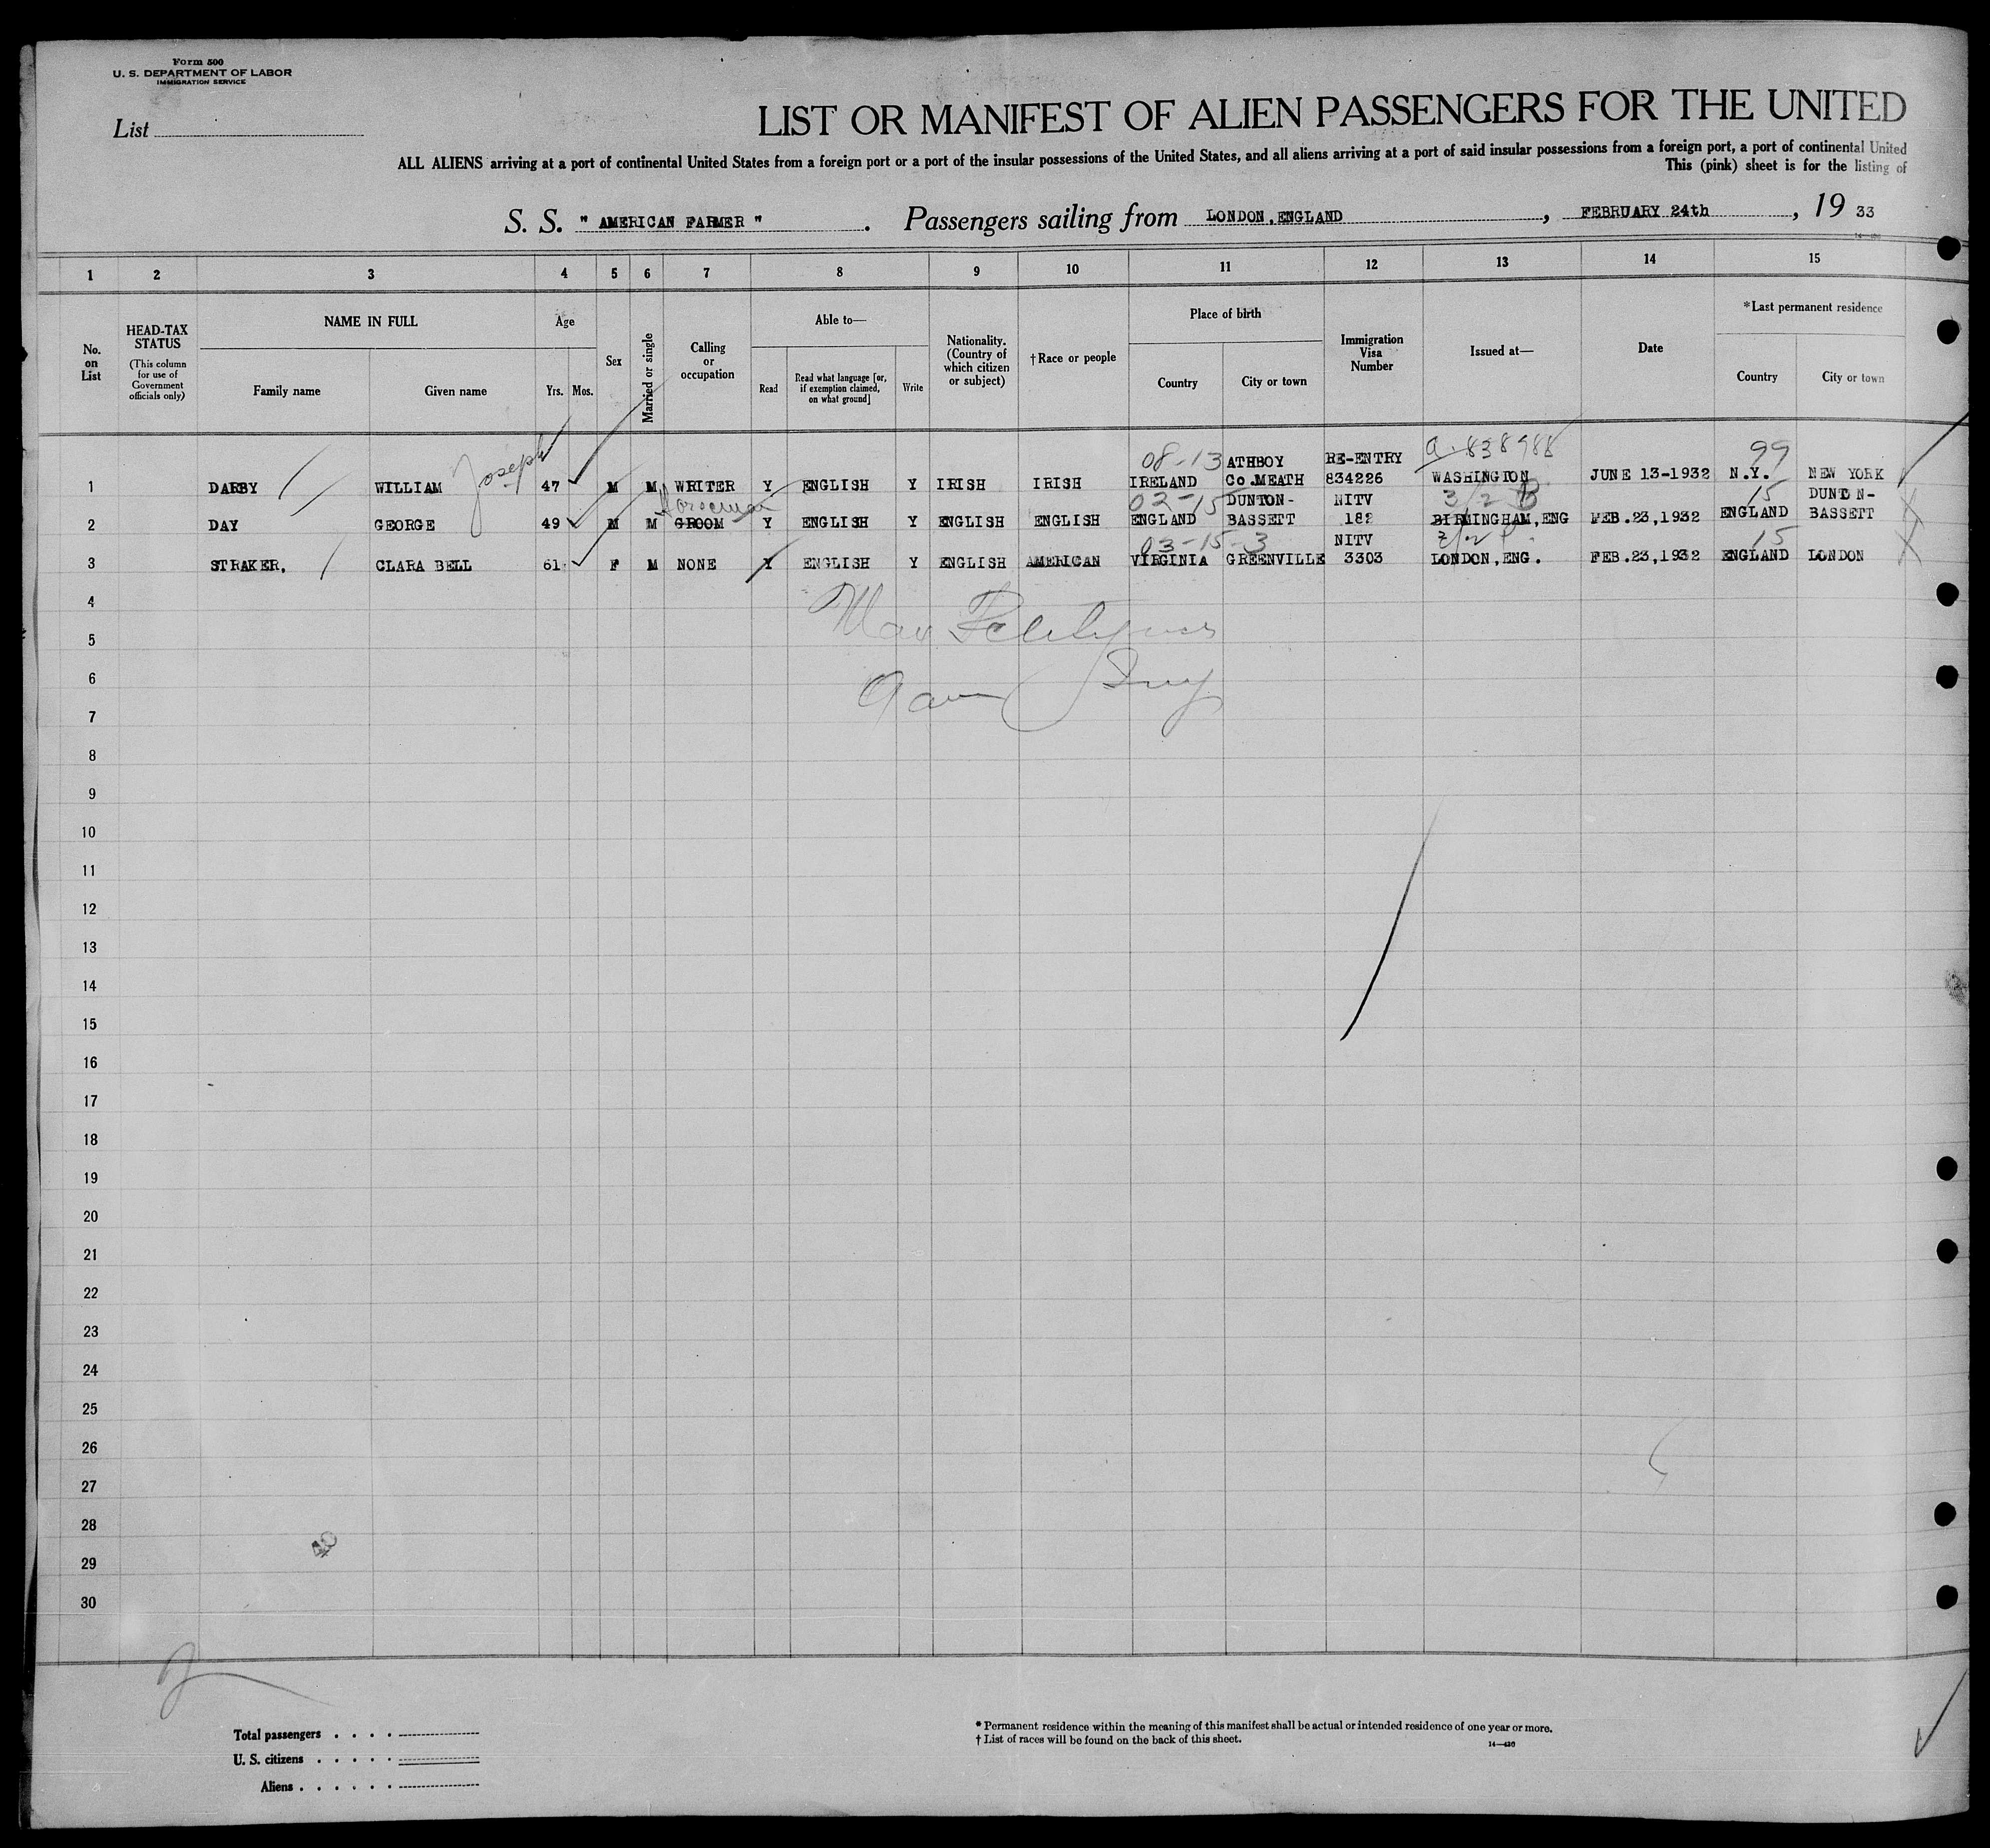 Form 500
U. S. DEPARTMENT OF LABOR
IMMIGRATION SERVICE
List
LIST OR MANIFEST OF ALIEN PASSENGERS FOR THE UNITED
ALL ALIENS arriving at a port of continental United States from a foreign port or a port of the insular possessions of the United States, and all aliens arriving at a port of said insular possessions from a foreign port, a port of continental United
This (pink) sheet is for the listing of
S. S. " AMERICAN FARMER " . Passengers sailing from LONDON, ENGLAND , FEBRUARY 24th , 19 33
1 2 3 4 5 6 7 8 9 10 11 12 13 14 15
No. on List
HEAD-TAX STATUS
(This column for use of Government officials only)
NAME IN FULL
Family name
Given name
Age
Yrs. Mos.
Sex
Married or single
Calling or occupation
Able to—
Read
Read what language [or, if exemption claimed, on what ground]
Write
Nationality. (Country of which citizen or subject)
†Race or people
Place of birth
Country
City or town
Immigration Visa Number
Issued at—
Date
*Last permanent residence
Country
City or town
Joseph 08-13 ATHBOY RE-ENTRY a-838988 99
1 DARBY WILLIAM 47 M M WRITER Y ENGLISH Y IRISH IRISH IRELAND Co.MEATH 834226 WASHINGTON JUNE 13-1932 N.Y. NEW YORK
Horseman 02-15 DUNTON- NITV 3/2 B 15 DUNTON-
2 DAY GEORGE 49 M M GROOM Y ENGLISH Y ENGLISH ENGLISH ENGLAND BASSETT 182 BIRMINGHAM,ENG FEB.23,1932 ENGLAND BASSETT
03-15-3 NITV 15
3 STRAKER. CLARA BELL 61 F M NONE Y ENGLISH Y ENGLISH AMERICAN VIRGINIA GREENVILLE 3303 LONDON,ENG. FEB.23,1932 ENGLAND LONDON
4
5
6
7
8
9
10
11
12
13
14
15
16
17
18
19
20
21
22
23
24
25
26
27
28
29
30
Total passengers
U. S. citizens
Aliens
* Permanent residence within the meaning of this manifest shall be actual or intended residence of one year or more.
† List of races will be found on the back of this sheet.
14—430